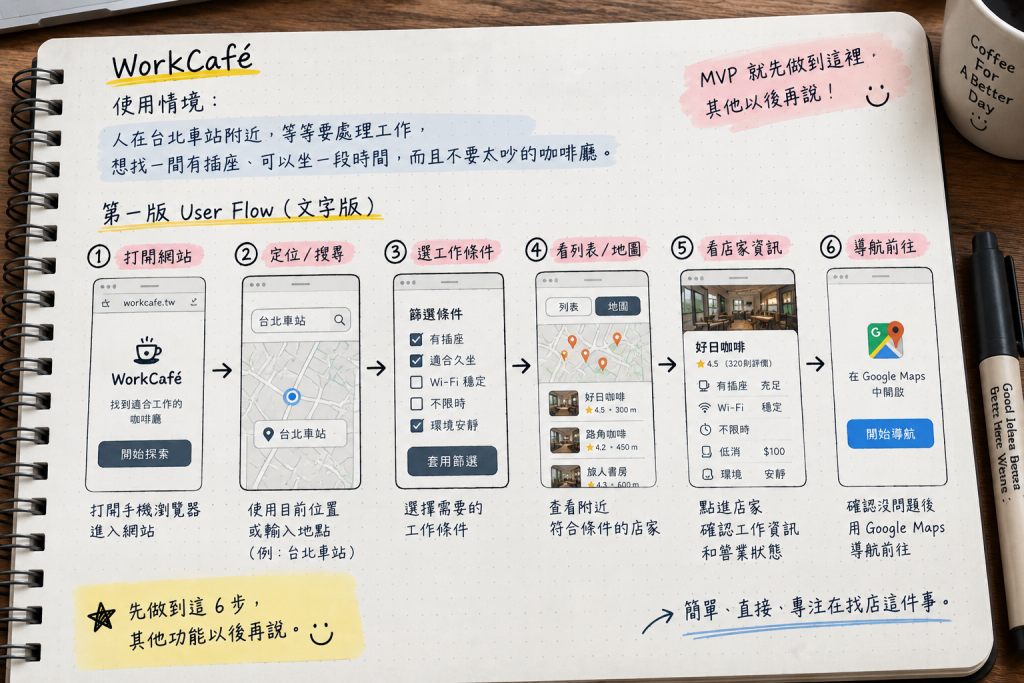 WorkCafé
使用情境：
人在台北車站附近，等等要處理工作，
想找一間有插座、可以坐一段時間，而且不要太吵的咖啡廳。
MVP 就先做到這裡，
其他以後再說！
Coffee
For
A Better
Day
第一版 User Flow（文字版）
① 打開網站
workcafe.tw
WorkCafé
找到適合工作的
咖啡廳
開始探索
打開手機瀏覽器
進入網站
② 定位/搜尋
台北車站
台北車站
使用目前位置
或輸入地點
（例：台北車站）
③ 選工作條件
篩選條件
有插座
適合久坐
Wi-Fi 穩定
不限時
環境安靜
套用篩選
選擇需要的
工作條件
④ 看列表/地圖
列表 地圖
好日咖啡
4.5 • 300 m
路角咖啡
4.2 • 450 m
旅人書房
4.3 • 600 m
查看附近
符合條件的店家
⑤ 看店家資訊
好日咖啡
4.5 （320則評價）
有插座 充足
Wi-Fi 穩定
不限時
低消 $100
環境 安靜
點進店家
確認工作資訊
和營業狀態
⑥ 導航前往
G
在 Google Maps
中開啟
開始導航
確認沒問題後
用 Google Maps
導航前往
先做到這 6 步，
其他功能以後再說。
簡單、直接、專注在找店這件事。